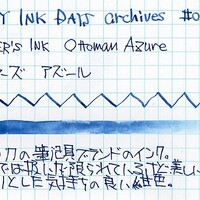 Y INK DAYS archives #0
ER'S INK Ottoman Azure
ーズ アズール
の筆記具ブランドのインク。
では扱いが限られている
とした気持ちの良い紺色。